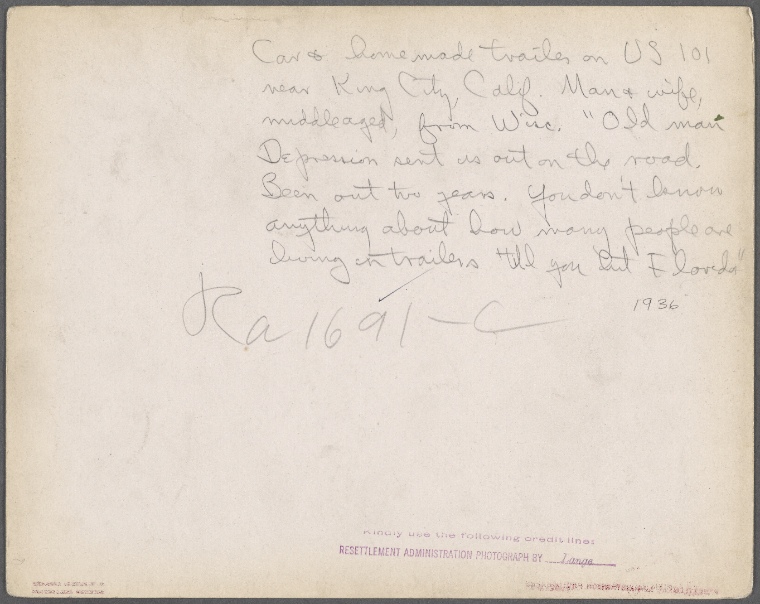 Car & home made trailer on US 101
near King City, Calif. Man & wife,
middleaged, from Wisc. "Old man
Depression sent us out on the road.
Been out two years. You don't know
anything about how many people are
living in trailers till you hit Florida"
1936
Ra 1691-C
Kindly use the following credit line:
RESETTLEMENT ADMINISTRATION PHOTOGRAPH BY Lange